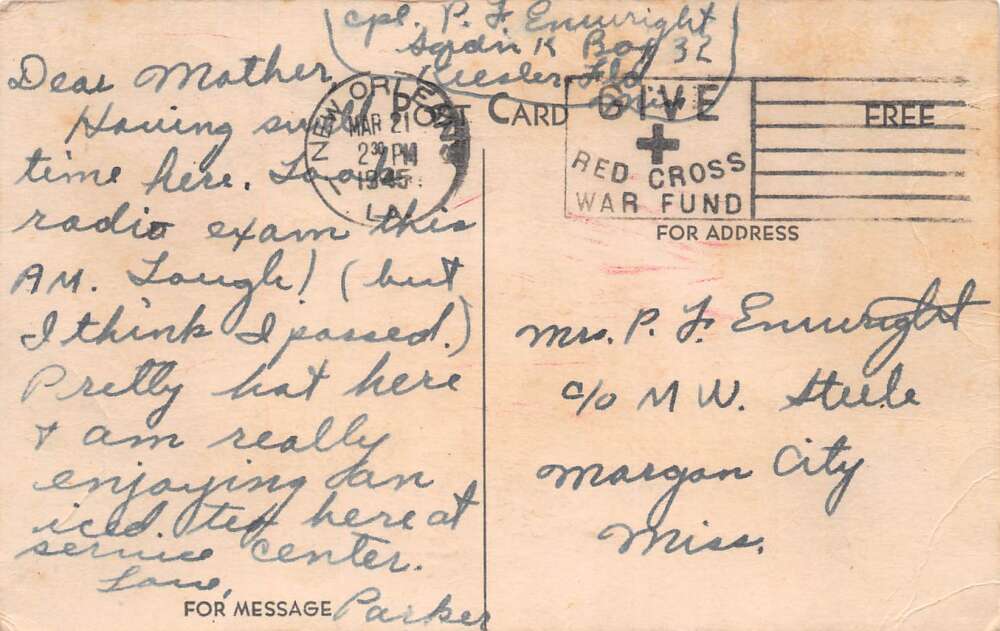 cpl. P. F. Enuwright
Sqdn K Box 32
Keesler Fld
Miss
Dear Mother,
Having swell
time here. Took
radio exam this
AM. Tough! (but
I think I passed.)
Pretty hot here
& am really
enjoying an
iced tea here at
service center.
Love,
Parker
FOR MESSAGE
POST CARD
NEW ORLEANS
MAR 21
2 30 PM
1945
LA.
GIVE
RED CROSS
WAR FUND
FREE
FOR ADDRESS
Mrs. P. F. Enuwright
c/o M W. Steele
Morgan City
Miss.